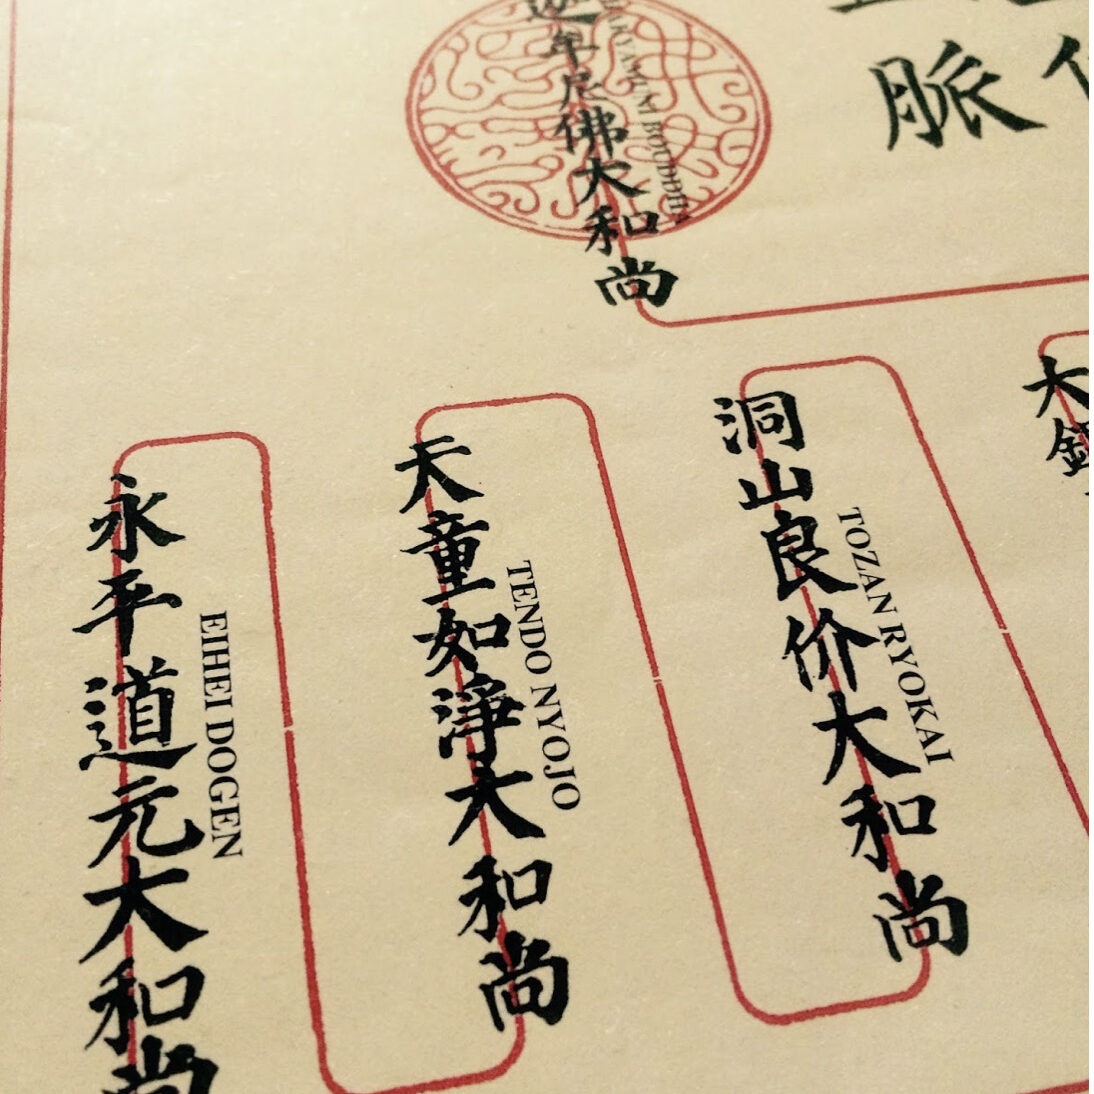 脈
迦牟尼佛大和尚
AKYAMUNI BOUDDHA
大
洞山良价大和尚
TOZAN RYOKAI
天童如淨大和尚
TENDO NYOJO
永平道元大和尚
EIHEI DOGEN